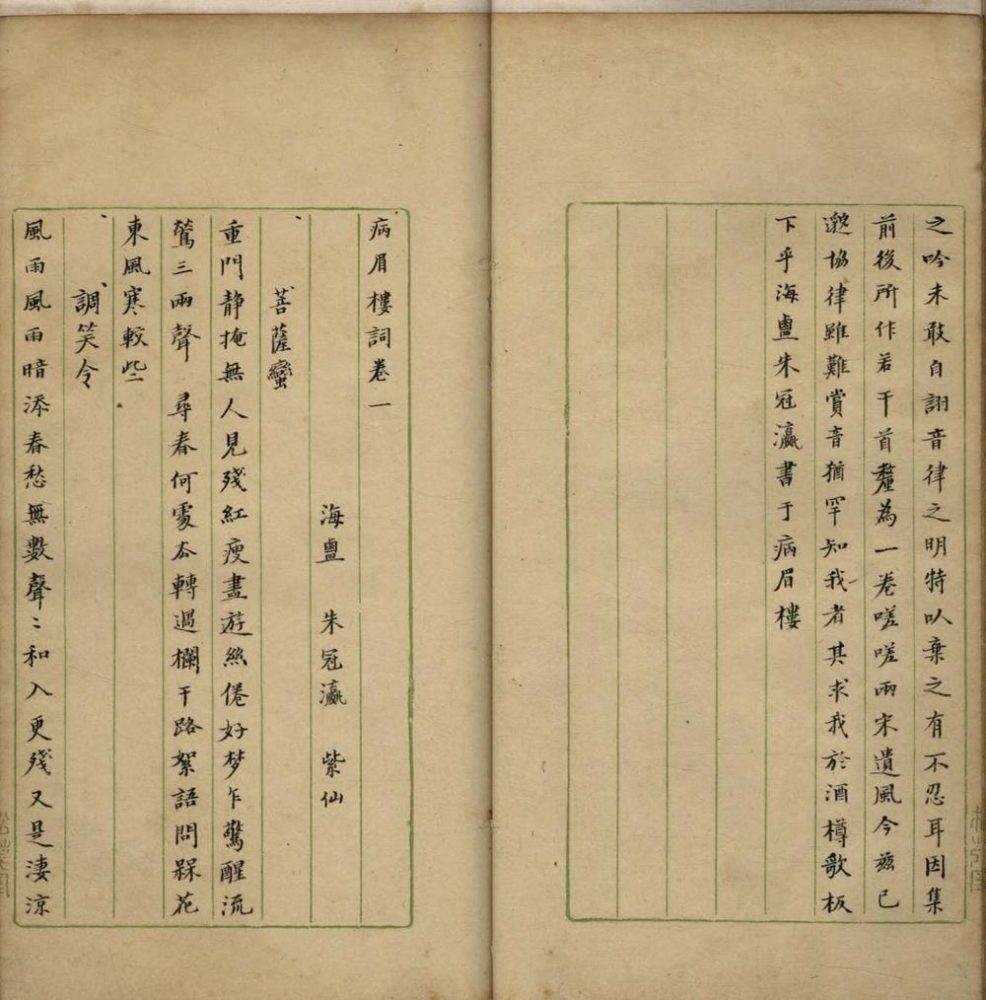 之吟未敢自詡音律之明特以棄之有不忍耳因集
前後所作若干首釐為一卷嗟嗟兩宋遺風今茲已
邈協律雖難賞音猶罕知我者其求我於酒樽歌板
下乎海鹽朱冠瀛書于病眉樓
病眉樓詞卷一
海鹽 朱冠瀛 紫仙
菩薩蠻
重門靜掩無人見殘紅瘦盡遊絲倦好梦乍驚醒流
鶯三兩聲 尋春何處去轉過欄干路絮語問槑花
東風寒較些
調笑令
風雨風雨暗添春愁無數聲〻和入更殘又是淒涼